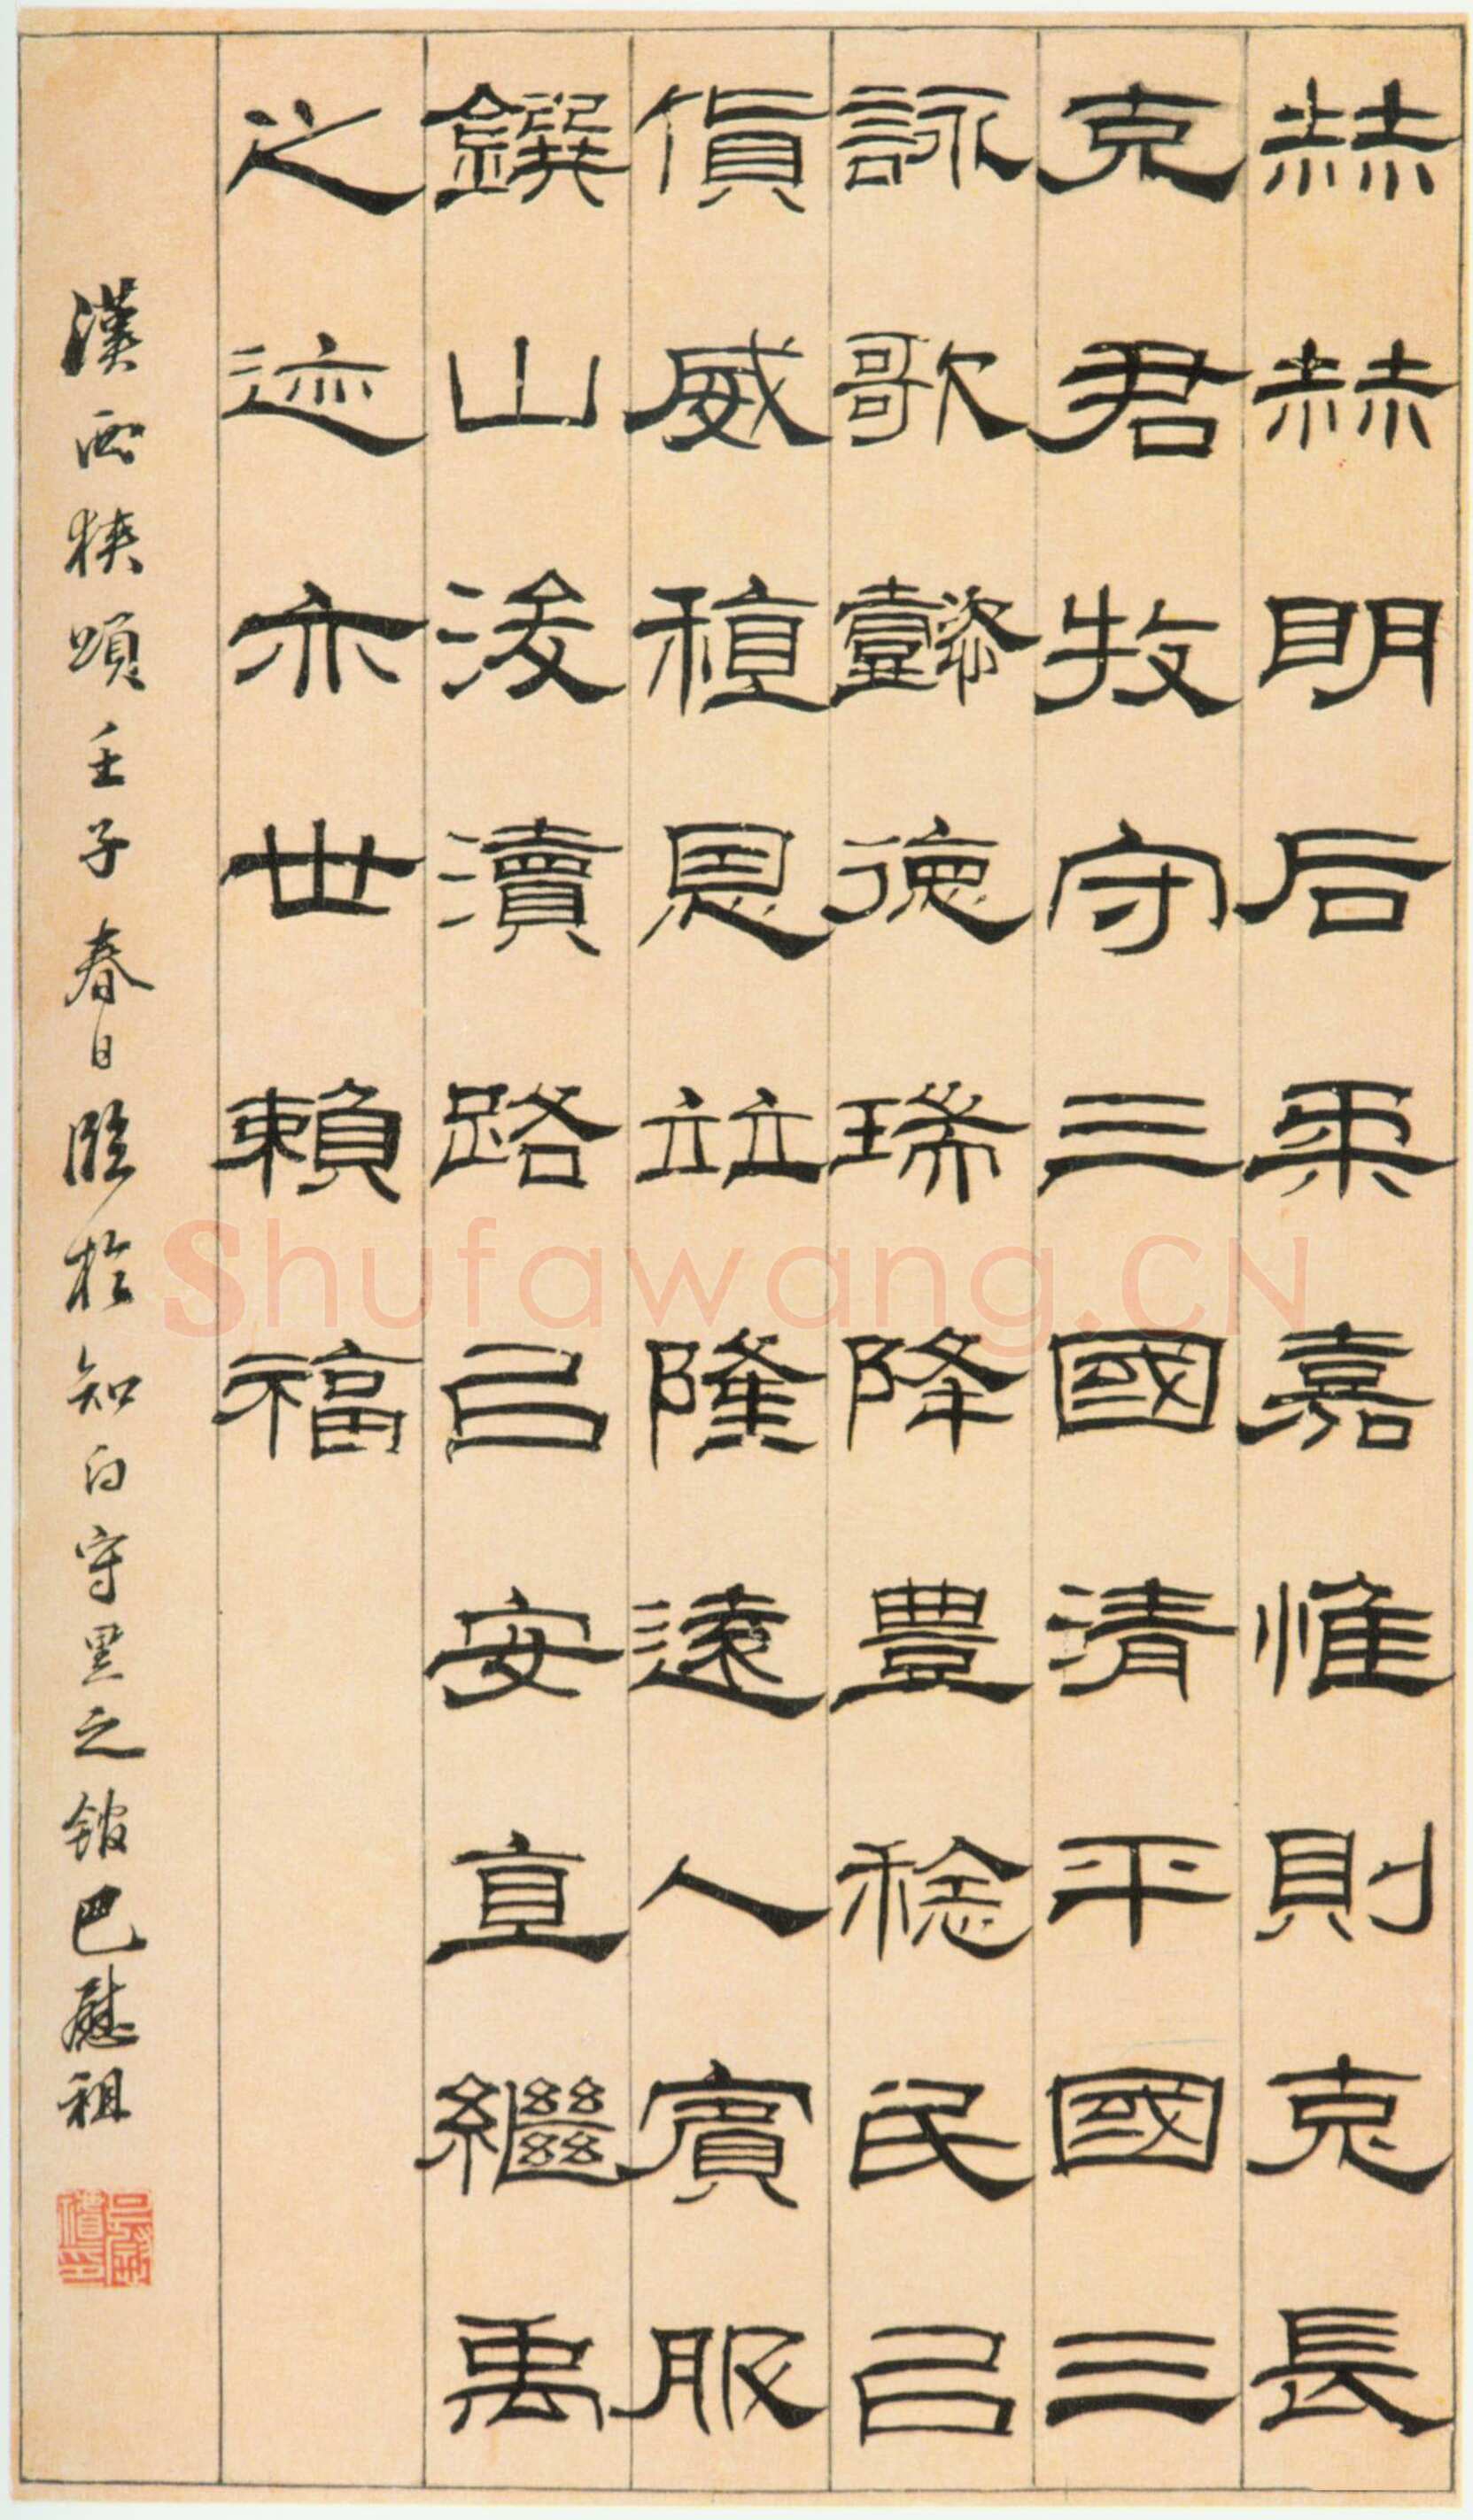 赫赫明后柔嘉惟則克長
克君牧守三國清平國三
詠歌懿德瑞降豊稔民㠯
貨威稙恩竝隆遠人賓服
鐉山浚瀆路㠯安直繼禹
之迹亦世賴福
漢西狹頌壬子春日臨於知白守黑之館巴慰祖
Shufawang.CN